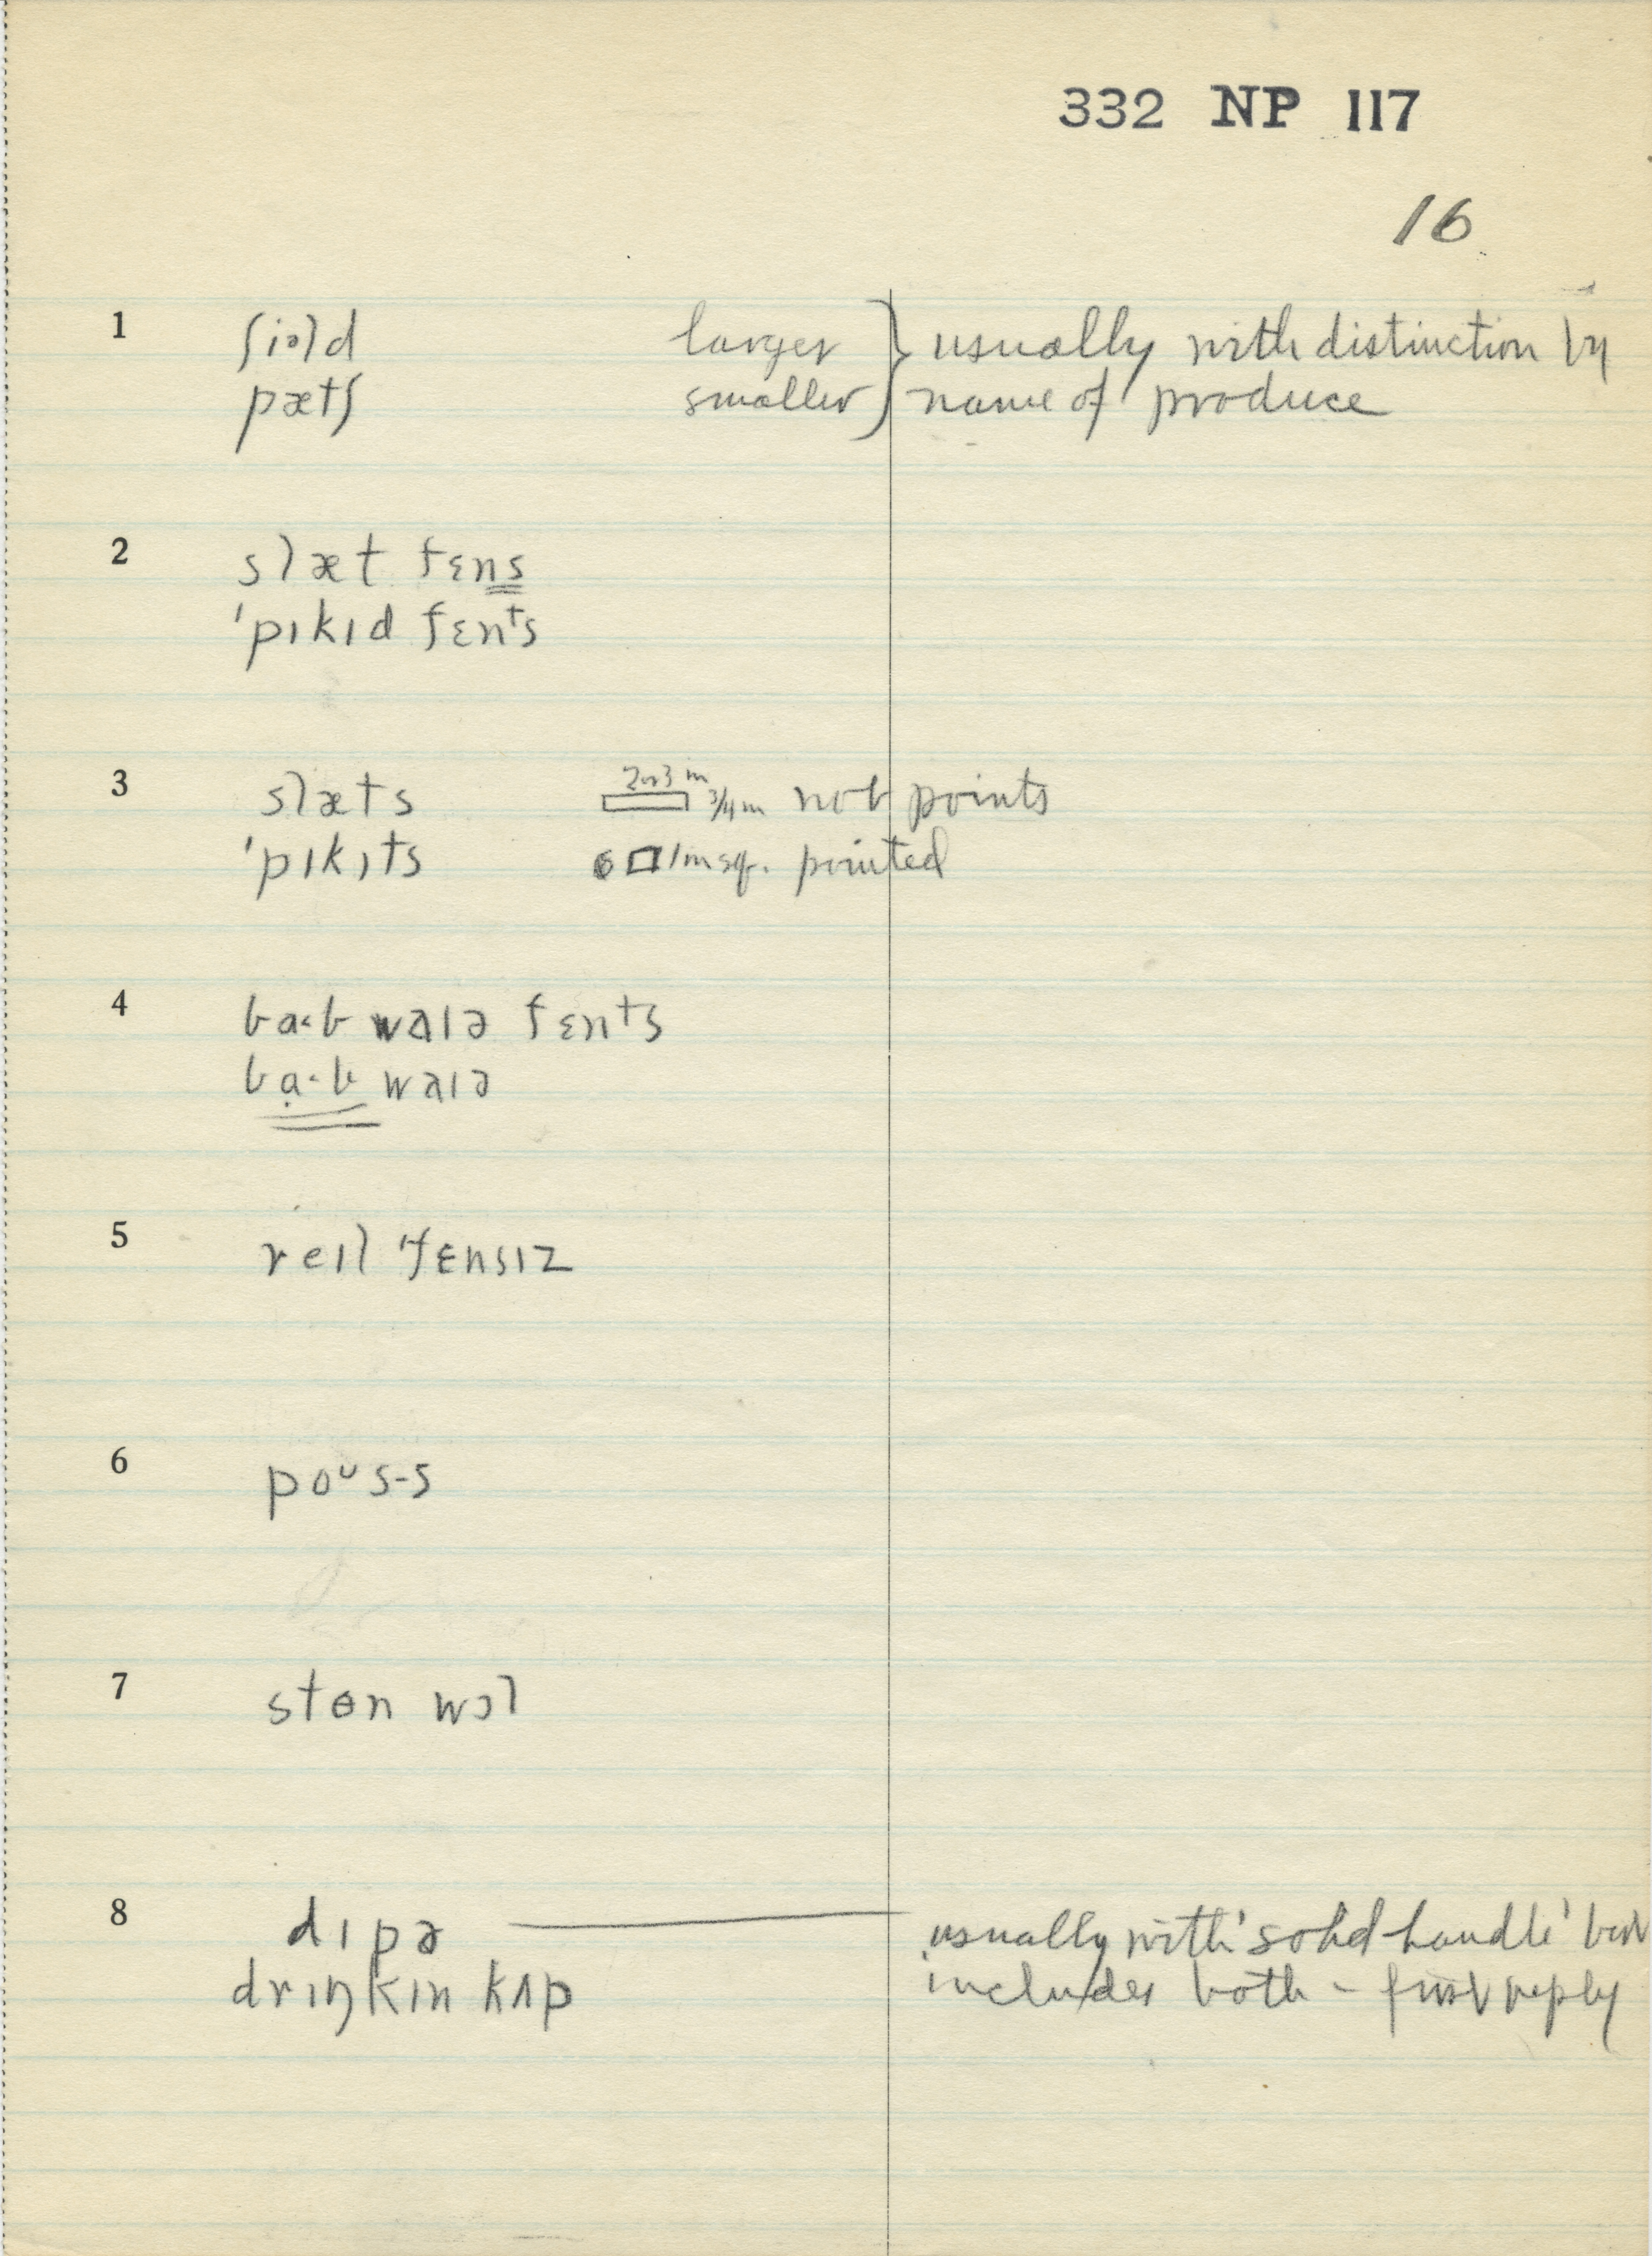 332 NP 117
16
1 fiəld larger } usually with distinction by
pætʃ smaller } name of produce
2 slæt fɛns
ˈpɪkɪd fɛnᵗs
3 slæts 2 or 3 in 3/4 in not points
ˈpɪkɪts 1 in sq. pointed
4 bɑ·b waɪə fɛnᵗs
bɑ·b waɪə
5 reɪl ˈfɛnsɪz
6 poᶷs-s
7 stɵn wɔl
8 dɪpə usually with 'solid handle' but
drɪŋkɪn kʌp includes both - first reply